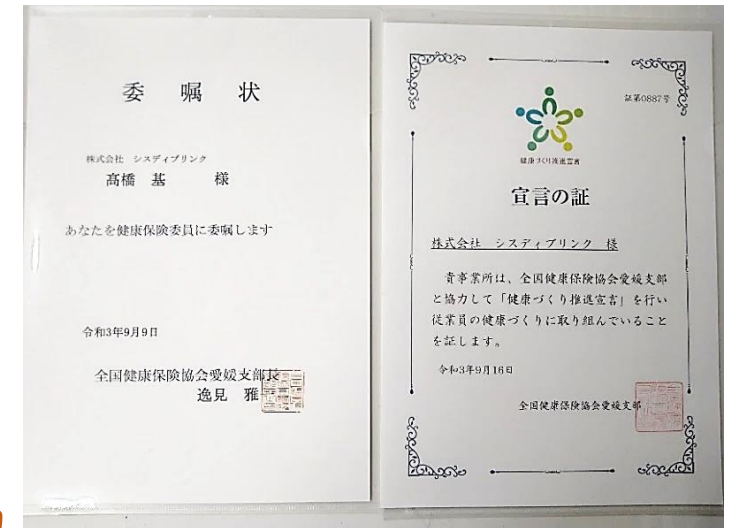 委嘱状
株式会社 シスディブリンク
髙橋 基 様
あなたを健康保険委員に委嘱します
令和3年9月9日
全国健康保険協会愛媛支部長
逸見 雅
証第0887号
健康づくり推進宣言
宣言の証
株式会社 シスディブリンク 様
貴事業所は、全国健康保険協会愛媛支部
と協力して「健康づくり推進宣言」を行い
従業員の健康づくりに取り組んでいること
を証します。
令和3年9月16日
全国健康保険協会愛媛支部